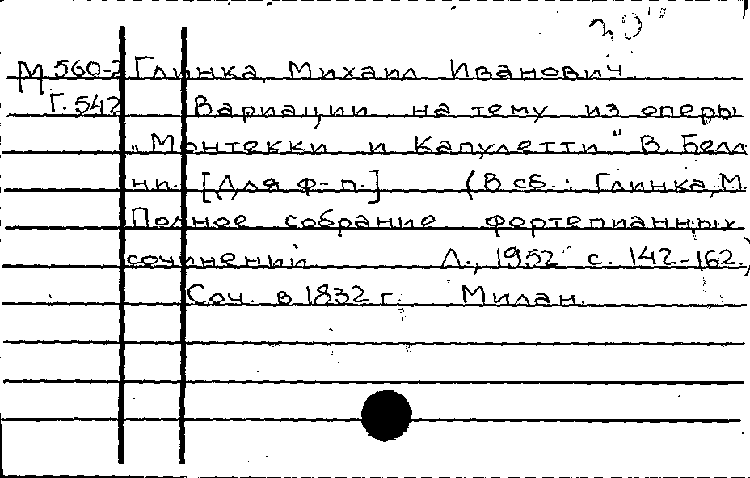 30''
М 560-2 Глинка, Михаил Иванович
Г. 542 Вариации на тему из оперы
„Монтекки и Капулетти" В. Белли
ни. [Для ф-п.] (В сб.: Глинка, М.
Полное собрание фортепианных
сочинений Л., 1952 с. 142-162.)
Соч. в 1832 г. Милан.